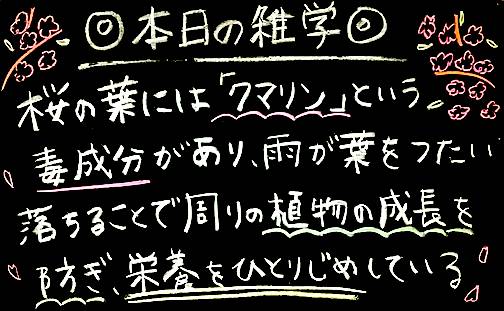 ◎本日の雑学◎
桜の葉には「クマリン」という
毒成分があり、雨が葉をつたい
落ちることで周りの植物の成長を
防ぎ、栄養をひとりじめしている